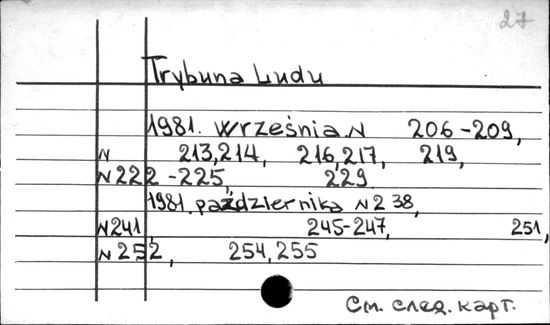 27
Trybuna Ludu
1981. Września N 206-209,
N 213,214, 216,217, 219,
N222-225, 229
1981. października N238,
N241, 245-247, 251,
N252, 254,255
См. след. карт.